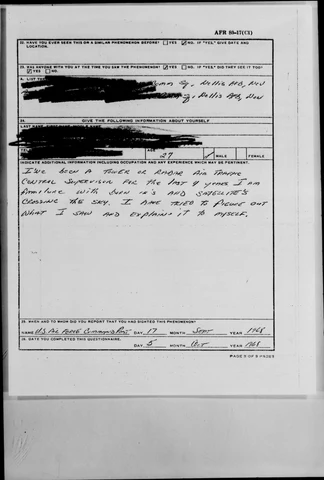 AFR 80-17(C1)
32. HAVE YOU EVER SEEN THIS OR A SIMILAR PHENOMENON BEFORE? YES NO IF "YES", GIVE DATE AND
LOCATION.
33. WAS ANYONE WITH YOU AT THE TIME YOU SAW THE PHENOMENON? YES NO IF "YES" DID THEY SEE IT TOO?
YES NO
Nellis AFB, Nev
Nellis AFB, Nev
34. GIVE THE FOLLOWING INFORMATION ABOUT YOURSELF
27 MALE FEMALE
INDICATE ADDITIONAL INFORMATION INCLUDING OCCUPATION AND ANY EXPERIENCE WHICH MAY BE PERTINENT.
I'VE BEEN A TOWER OR RADAR AIR TRAFFIC
CONTROL SUPERVISOR FOR THE LAST 4 YEARS I AM
WITH AND SATELLITES
CROSSING THE SKY. I HAVE TRIED TO FIGURE OUT
WHAT I SAW AND EXPLAIN IT TO MYSELF.
WHEN AND TO WHOM DID YOU REPORT THAT YOU HAD SIGHTED THIS PHENOMENON?
NAME U.S. AIR FORCE COMMAND POST DAY 17 MONTH SEPT YEAR 1968
DATE YOU COMPLETED THIS QUESTIONNAIRE.
DAY 5 MONTH OCT YEAR 1968